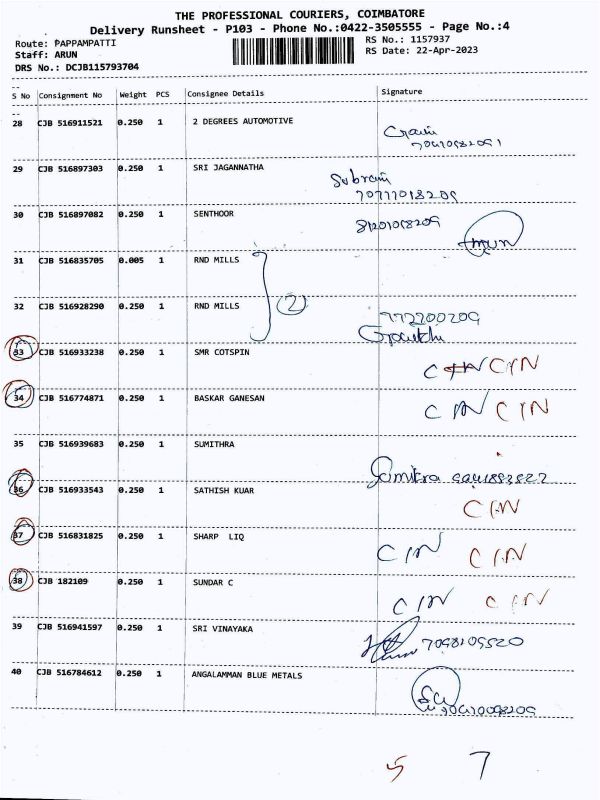 THE PROFESSIONAL COURIERS, COIMBATORE
Delivery Runsheet - P103 - Phone No.:0422-3505555 - Page No.:4
Route: PAPPAMPATTI RS No.: 1157937
Staff: ARUN RS Date: 22-Apr-2023
DRS No.: DCJB115793704
S No Consignment No Weight PCS Consignee Details Signature
28 CJB 516911521 0.250 1 2 DEGREES AUTOMOTIVE
29 CJB 516897303 0.250 1 SRI JAGANNATHA
30 CJB 516897082 0.250 1 SENTHOOR
31 CJB 516835705 0.005 1 RND MILLS
(2)
32 CJB 516928290 0.250 1 RND MILLS
33 CJB 516933238 0.250 1 SMR COTSPIN
CIN CIN
34 CJB 516774871 0.250 1 BASKAR GANESAN
CIN CIN
35 CJB 516939683 0.250 1 SUMITHRA
36 CJB 516933543 0.250 1 SATHISH KUAR
CIN
37 CJB 516831825 0.250 1 SHARP LIQ
CIN CIN
38 CJB 182109 0.250 1 SUNDAR C
CIN CIN
39 CJB 516941597 0.250 1 SRI VINAYAKA
40 CJB 516784612 0.250 1 ANGALAMMAN BLUE METALS
5 7